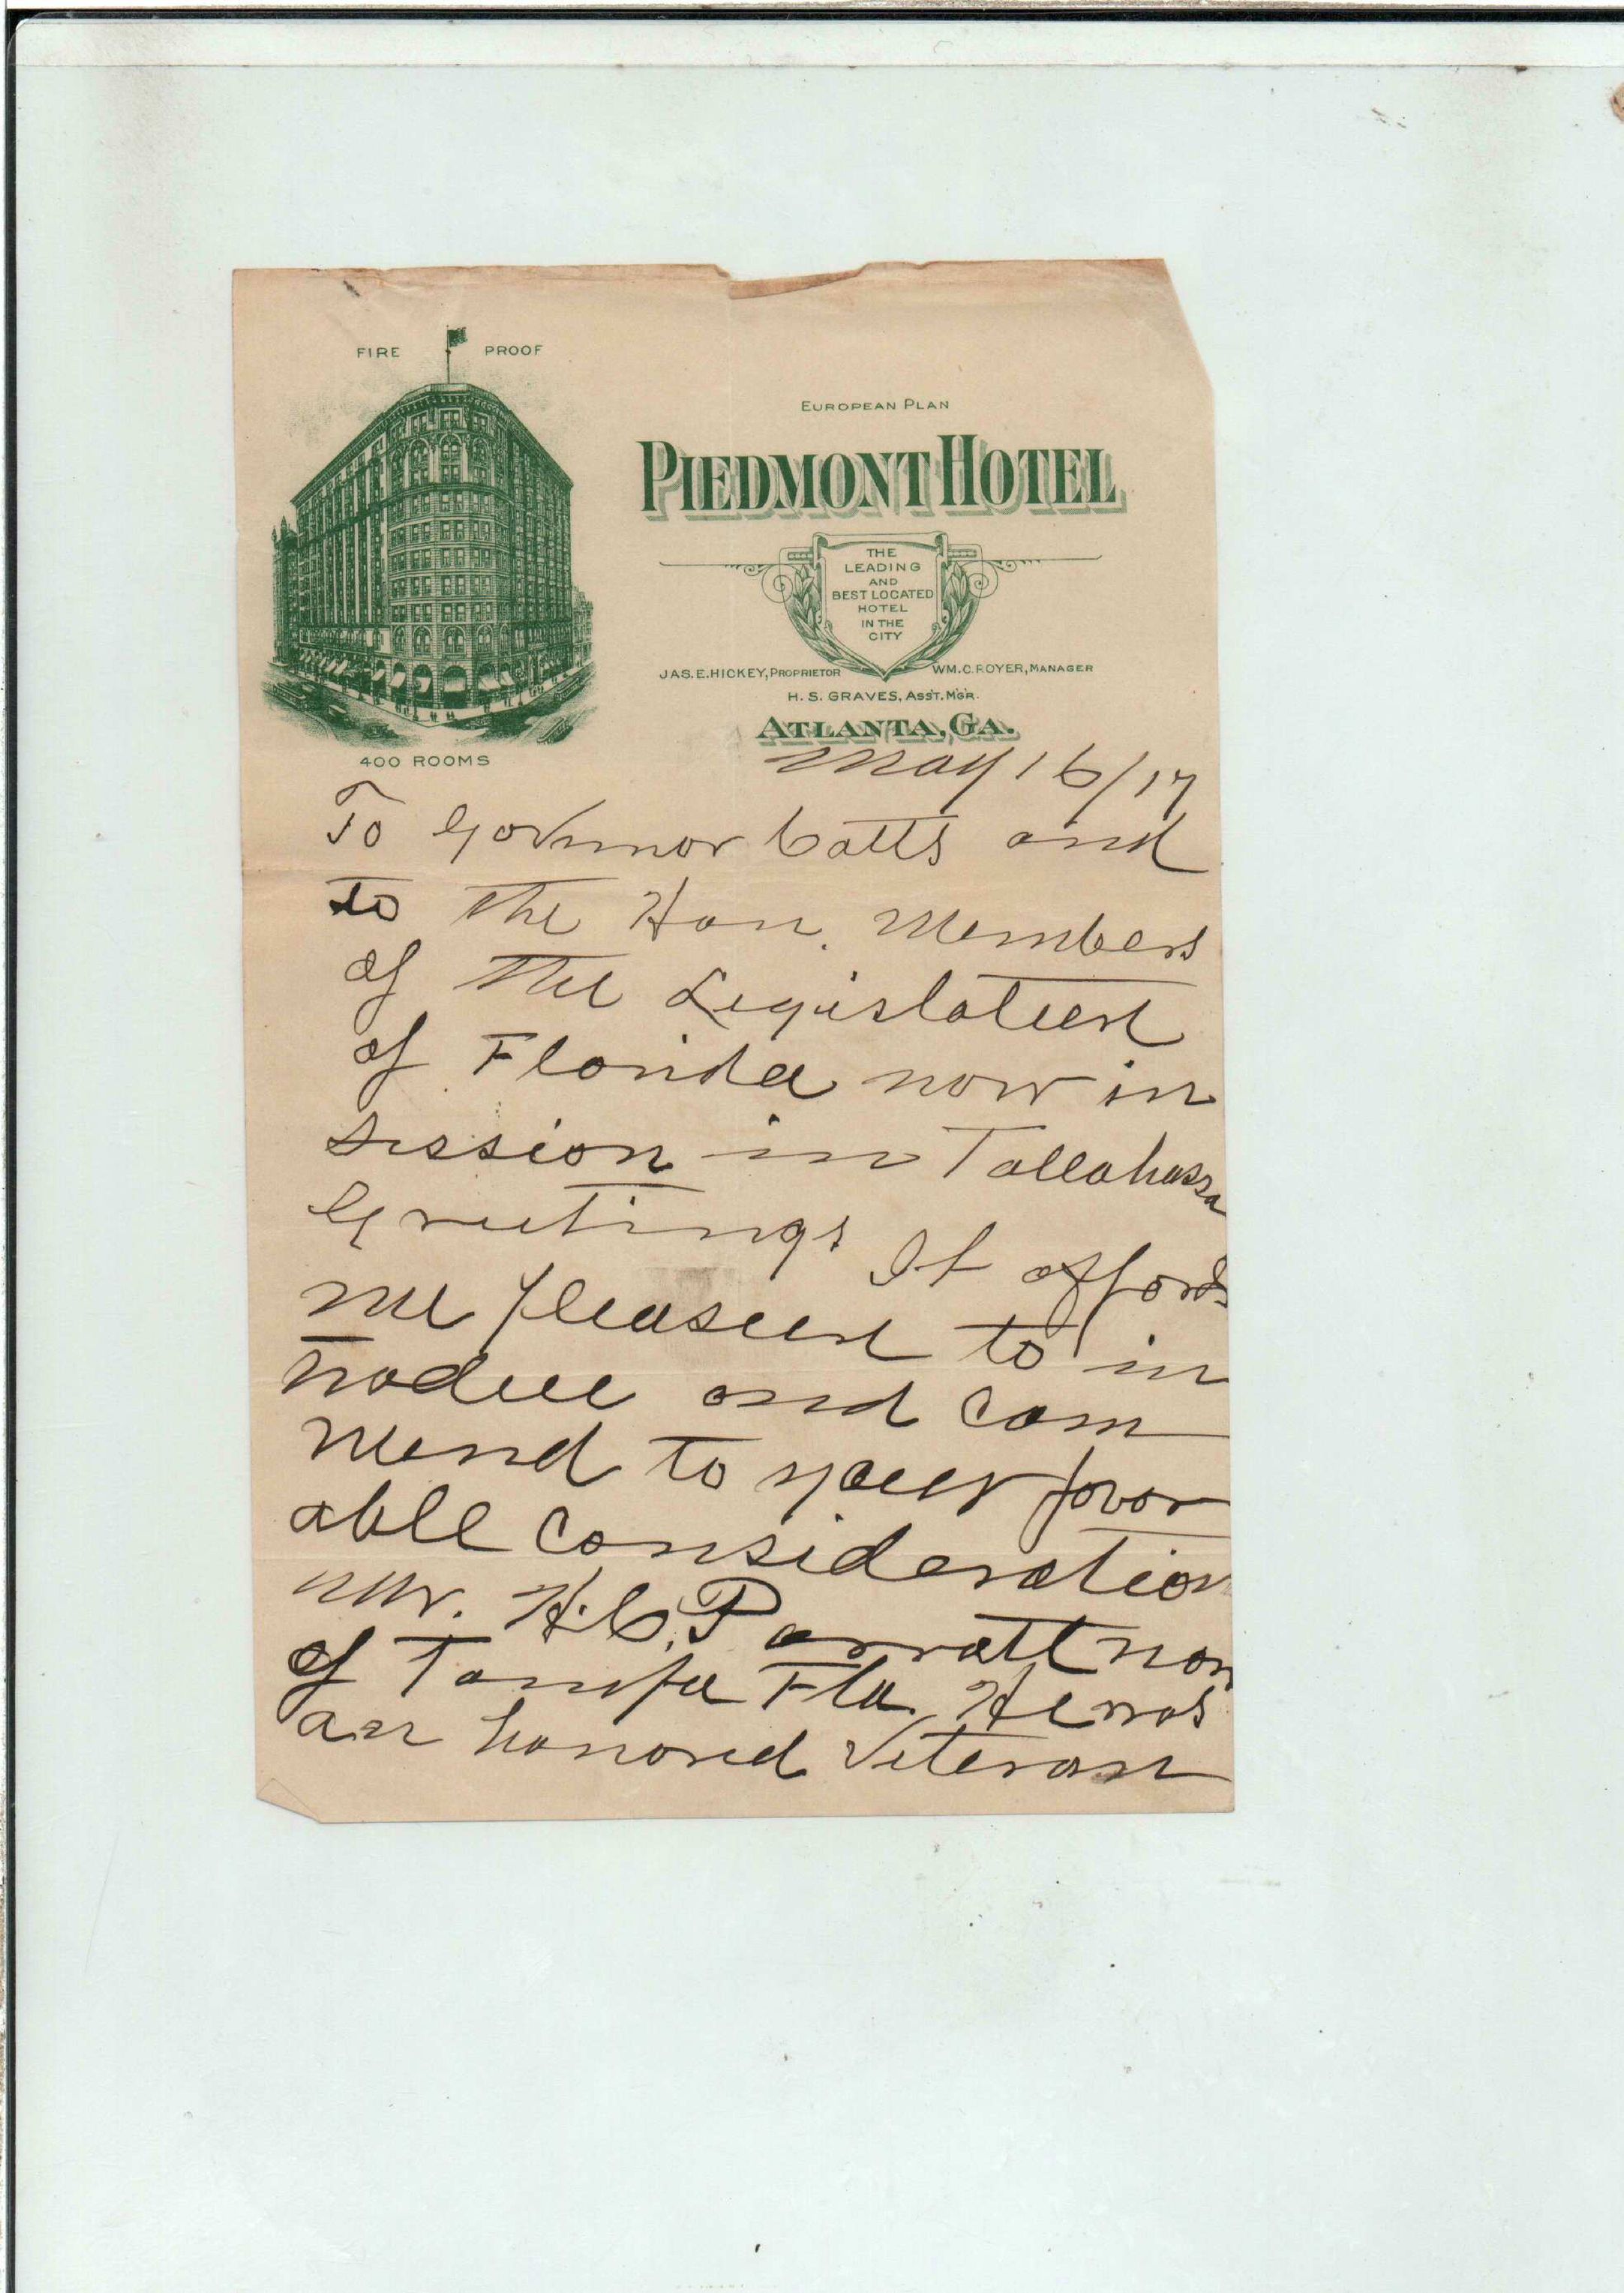 FIRE PROOF
EUROPEAN PLAN
PIEDMONT HOTEL
THE
LEADING
AND
BEST LOCATED
HOTEL
IN THE
CITY
JAS. E. HICKEY, PROPRIETOR WM. C. ROYER, MANAGER
H. S. GRAVES, ASS'T. M'G'R.
ATLANTA, GA.
400 ROOMS
May 16/17
To Governor Catts and
to the Hon. Members
of the Legislature
of Florida now in
session in Tallahassa
Greetings It affords
me pleasure to in
troduce and com
mend to your favor
able consideration
Mr. H. C. Parratt now
of Tampa Fla. He was
an honored Veteran